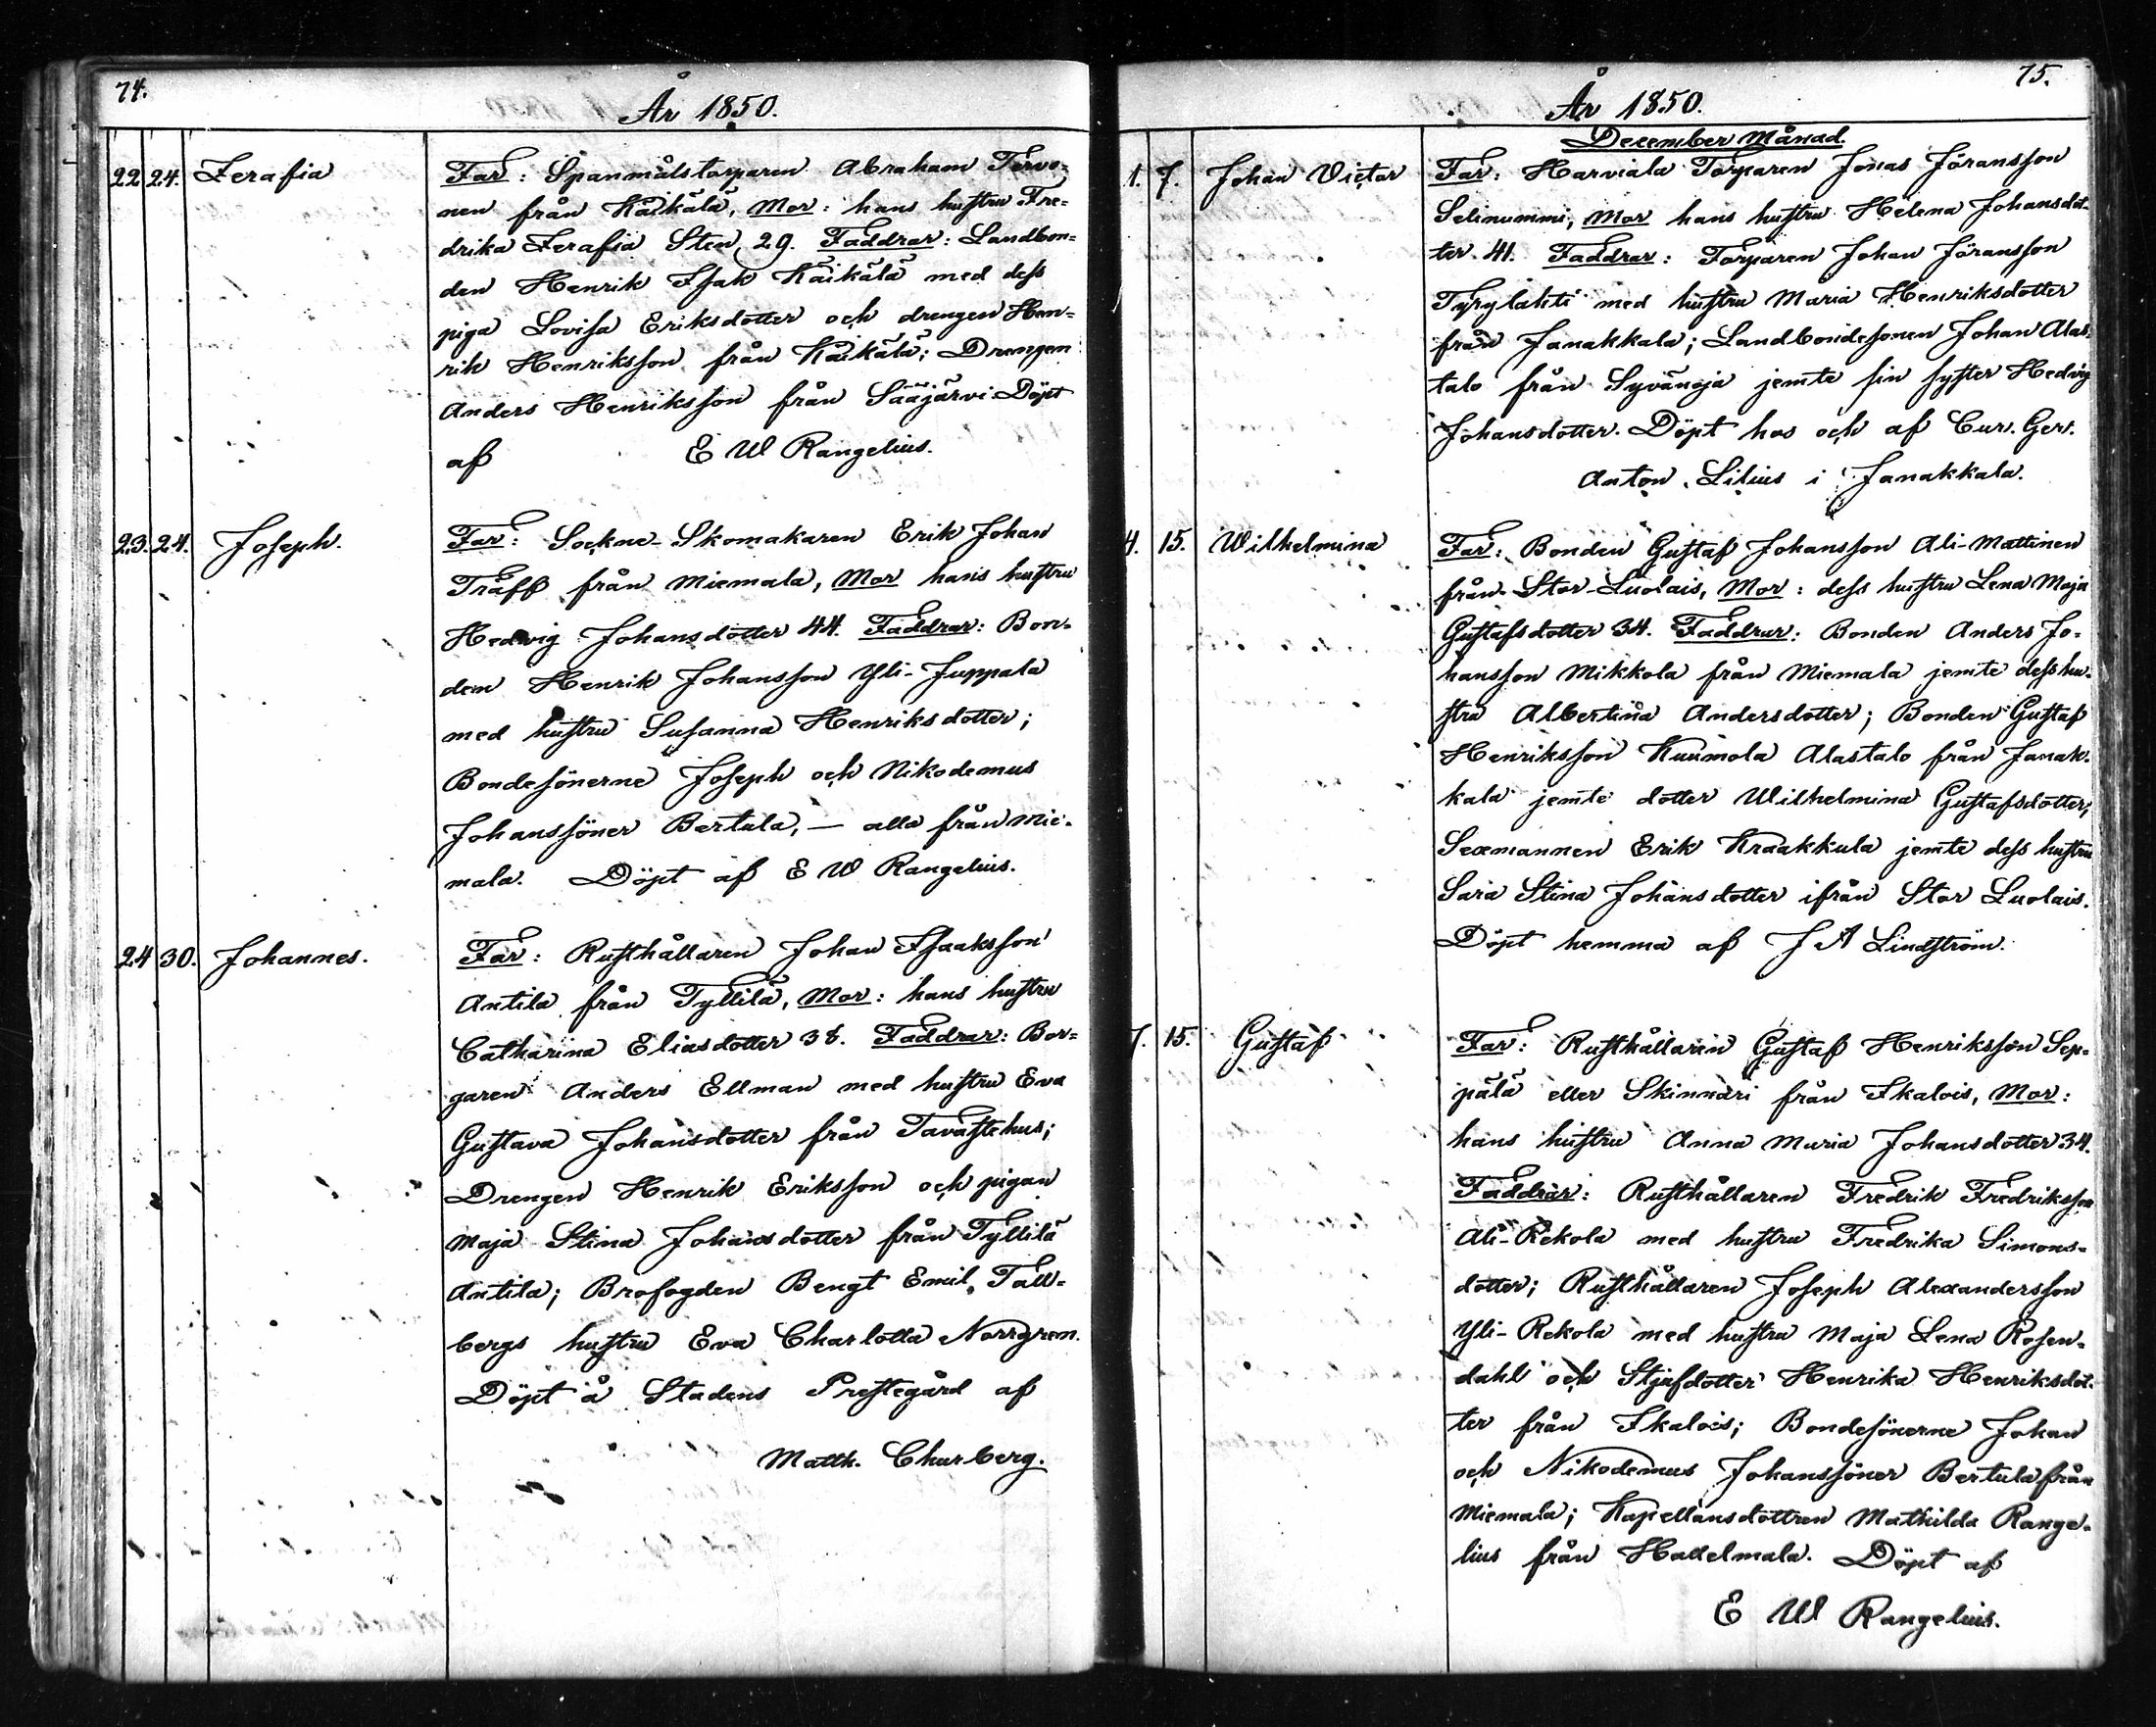 74.
År 1850.
22 24. Zerafia Far: Spanmålstorparen Abraham Tervo-
nen från Käikälä, Mor: hans hustru Fre-
drika Zerafia Sten, 29. Faddrar: Landbon-
den Henrik Isak Käikälä med dess
piga Lovisa Eriksdotter och drengen Hen-
rik Henriksson från Käikälä; Drengen
Anders Henriksson från Sääjärvi. Döpt
af E W Rangelius.
23. 24. Joseph. Far: Sockne-Skomakaren Erik Johan
Träff från Miemala, Mor hans hustru
Hedvig Johansdotter 44. Faddrar: Bon-
den Henrik Johansson Yli-Juppala
med hustru Susanna Henriksdotter;
Bondesönerne Joseph och Nikodemus
Johanssöner Bertula, — alla från Mie-
mala. Döpt af E W Rangelius.
24 30. Johannes. Far: Rusthållaren Johan Isaaksson
Antila från Tyllilä, Mor: hans hustru
Catharina Eliasdotter 38. Faddrar: Bor-
garen Anders Ellman med hustru Eva
Gustava Johansdotter från Tavastehus;
Drengen Henrik Eriksson och pigan
Maja Stina Johansdotter från Tyllilä
Antila; Brofogden Bengt Emil Tall-
bergs hustru Eva Charlotta Norrgren.
Döpt å Stadens Prestegård af
Matth. Churberg.
75.
År 1850.
December Månad.
1. 7. Johan Victor Far: Harviala Torparen Jonas Jöransson
Selinummi, Mor hans hustru Helena Johansdot-
ter 41. Faddrar: Torparen Johan Jöransson
Tyrylahti med hustru Maria Henriksdotter
från Janakkala; Landbondesonen Johan Alas-
talo från Syvänoja jemte sin syster Hedvig
Johansdotter. Döpt hos och af Cur. Ger.
Anton Lilius i Janakkala.
4. 15. Wilhelmina Far: Bonden Gustaf Johansson Ali-Mattinen
från Stor-Luolais, Mor: dess hustru Lena Maja
Gustafsdotter 34. Faddrar: Bonden Anders Jo-
hansson Mikkola från Miemala jemte dess hu-
stru Albertina Andersdotter; Bonden Gustaf
Henriksson Kuumola Alastalo från Janak-
kala jemte dotter Wilhelmina Gustafsdotter;
Sexmannen Erik Kraakkula jemte dess hustru
Sara Stina Johansdotter ifrån Stor Luolais.
Döpt hemma af J A Lindström.
7. 15. Gustaf Far: Rusthållaren Gustaf Henriksson Sep-
pälä eller Skinnäri från Ikalois, Mor:
hans hustru Anna Maria Johansdotter 34.
Faddrar: Rusthållaren Fredrik Fredriksson
Ali-Rekola med hustru Fredrika Simons-
dotter; Rusthållaren Joseph Alexandersson
Yli-Rekola med hustru Maja Lena Rosen-
dahl och Stjufdotter Henrika Henriksdot-
ter från Ikalois; Bondesönerne Johan
och Nikodemus Johanssöner Bertula från
Miemala; Kapellansdottren Mathilda Range-
lius från Hattelmala. Döpt af
E W Rangelius.